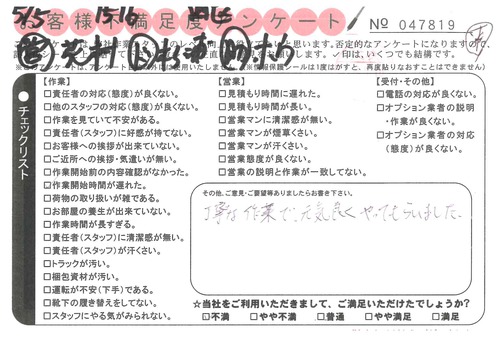 5/5 15-16
お客様不満足度アンケート No 047819
再度貼りなおすことはできません)
チェックリスト
【作業】
□責任者の対応(態度)が良くない。
□他のスタッフの対応(態度)が良くない。
□作業を見ていて不安がある。
□責任者(スタッフ)に好感が持てない。
□お客様への挨拶が出来ていない。
□ご近所への挨拶・気遣いが無い。
□作業開始前の内容確認がなかった。
□作業開始時間が遅れた。
□荷物の取り扱いが雑である。
□お部屋の養生が出来ていない。
□作業時間が長すぎる。
□責任者(スタッフ)に清潔感が無い。
□責任者(スタッフ)が汗くさい。
□トラックが汚い。
□梱包資材が汚い。
□運転が不安(下手)である。
□靴下の履き替えをしてない。
□スタッフにやる気がみられない。
【営業】
□見積もり時間に遅れた。
□見積もり時間に長い。
□営業マンに清潔感が無い。
□営業マンが煙草くさい。
□営業マンが汗くさい。
□営業態度が良くない。
□営業の説明と作業が一致してない。
【受付・その他】
□電話の対応が良くない。
□オプション業者の説明
・作業が良くない。
□オプション業者の対応
(態度)が良くない。
その他、ご意見・ご要望等ありましたらお書き下さい。
丁寧な作業で、元気良くやってもらいました。
☆当社をご利用いただきまして、ご満足いただけたでしょうか?
□不満 □やや不満 □普通 □やや満足 □満足